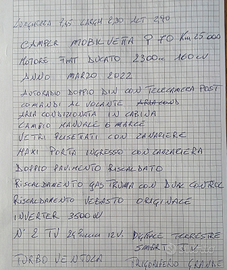 LUNGHEZZA 7,45 LARGH 2,30 ALT 2,90
CAMPER MOBILVETTA P 70 KM 25000
MOTORE FIAT DUCATO 2300cc 160 CV
ANNO MARZO 2022
AUTORADIO DOPPIO DIN CON TELECAMERA POST
COMANDI AL VOLANTE
ARIA CONDIZIONATA IN CABINA
CAMBIO MANUALE 6 MARCE
VETRI PLISETTATI CON ZANZARIERE
MAXI PORTA INGRESSO CON ZANZARIERA
DOPPIO PAVIMENTO RISCALDATO
RISCALDAMENTO GAS TRUMA CON DUAL CONTROL
RISCALDAMENTO VEBASTO ORIGINALE
INVERTER 3500 W
N° 2 TV 12V. DIGITALE TERRESTRE
SMART TV
TURBO VENTOLA FRIGORIFERO GRANDE